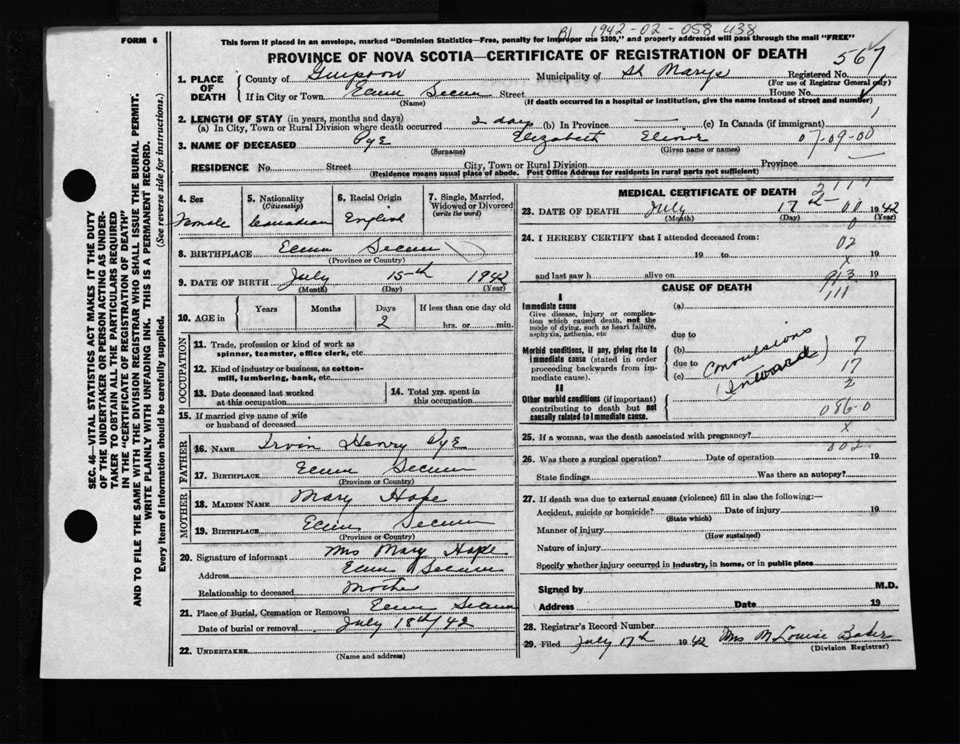 B1 1942-02-058438
FORM 6
This form if placed in an envelope, marked "Dominion Statistics—Free, penalty for improper use $300," and properly addressed will pass through the mail "FREE"
PROVINCE OF NOVA SCOTIA—CERTIFICATE OF REGISTRATION OF DEATH
567
1. PLACE OF DEATH County of Guysboro Municipality of St Marys Registered No.
(For use of Registrar General only)
If in City or Town Ecum Secum Street House No.
(Name) (If death occurred in a hospital or institution, give the name instead of street and number)
2. LENGTH OF STAY (in years, months and days)
(a) In City, Town or Rural Division where death occurred 2 days (b) In Province — (c) In Canada (if immigrant) 1
3. NAME OF DECEASED Pye Elizabeth Elinor 07-09-00
(Surname) (Given name or names)
RESIDENCE No. Street City, Town or Rural Division Province
(Residence means usual place of abode. Post Office Address for residents in rural parts not sufficient)
4. Sex Female
5. Nationality (Citizenship) Canadian
6. Racial Origin English
7. Single, Married, Widowed or Divorced (write the word)
8. BIRTHPLACE Ecum Secum
(Province or Country)
9. DATE OF BIRTH July 15-th 1942
(Month) (Day) (Year)
10. AGE in Years Months Days 2 If less than one day old
hrs. or min.
OCCUPATION
11. Trade, profession or kind of work as
spinner, teamster, office clerk, etc.
12. Kind of industry or business, as cotton-
mill, lumbering, bank, etc.
13. Date deceased last worked
at this occupation
14. Total yrs. spent in
this occupation
15. If married give name of wife
or husband of deceased
FATHER
16. NAME Irvin Henry Pye
17. BIRTHPLACE Ecum Secum
(Province or Country)
MOTHER
18. MAIDEN NAME Mary Hope
19. BIRTHPLACE Ecum Secum
(Province or Country)
20. Signature of informant Mrs Mary Hope
Address Ecum Secum
Relationship to deceased Mother
21. Place of Burial, Cremation or Removal Ecum Secum
Date of burial or removal July 18th/42
22. UNDERTAKER
(Name and address)
MEDICAL CERTIFICATE OF DEATH
23. DATE OF DEATH July 17 1942
(Month) (Day) (Year)
24. I HEREBY CERTIFY that I attended deceased from:
19 to 19
02
x
and last saw h alive on 19
913
111
CAUSE OF DEATH
I
Immediate cause (a)
Give disease, injury or complica-
tion which caused death, not the
mode of dying, such as heart failure,
asphyxia, asthenia, etc
due to
Morbid conditions, if any, giving rise to
immediate cause (stated in order
proceeding backwards from im-
mediate cause).
(b)
due to
(c)
Convulsions
(Inward)
7
17
2
II
Other morbid conditions (if important)
contributing to death but not
causally related to immediate cause.
086-0
x
25. If a woman, was the death associated with pregnancy?
802
26. Was there a surgical operation? Date of operation 19
State findings Was there an autopsy?
27. If death was due to external causes (violence) fill in also the following:—
Accident, suicide or homicide? Date of injury 19
(State which)
Manner of injury
(How sustained)
Nature of injury
Specify whether injury occurred in industry, in home, or in public place
Signed by M.D.
Address Date 19
28. Registrar's Record Number
29. Filed July 17th 1942 Mrs M Louise Baker
(Division Registrar)
SEC. 46—VITAL STATISTICS ACT MAKES IT THE DUTY
OF THE UNDERTAKER OR PERSON ACTING AS UNDER-
TAKER TO OBTAIN ALL THE PARTICULARS REQUIRED
IN THE "CERTIFICATE OF REGISTRATION OF DEATH"
AND TO FILE THE SAME WITH THE DIVISION REGISTRAR WHO SHALL ISSUE THE BURIAL PERMIT.
WRITE PLAINLY WITH UNFADING INK. THIS IS A PERMANENT RECORD.
Every item of information should be carefully supplied. (See reverse side for instructions.)